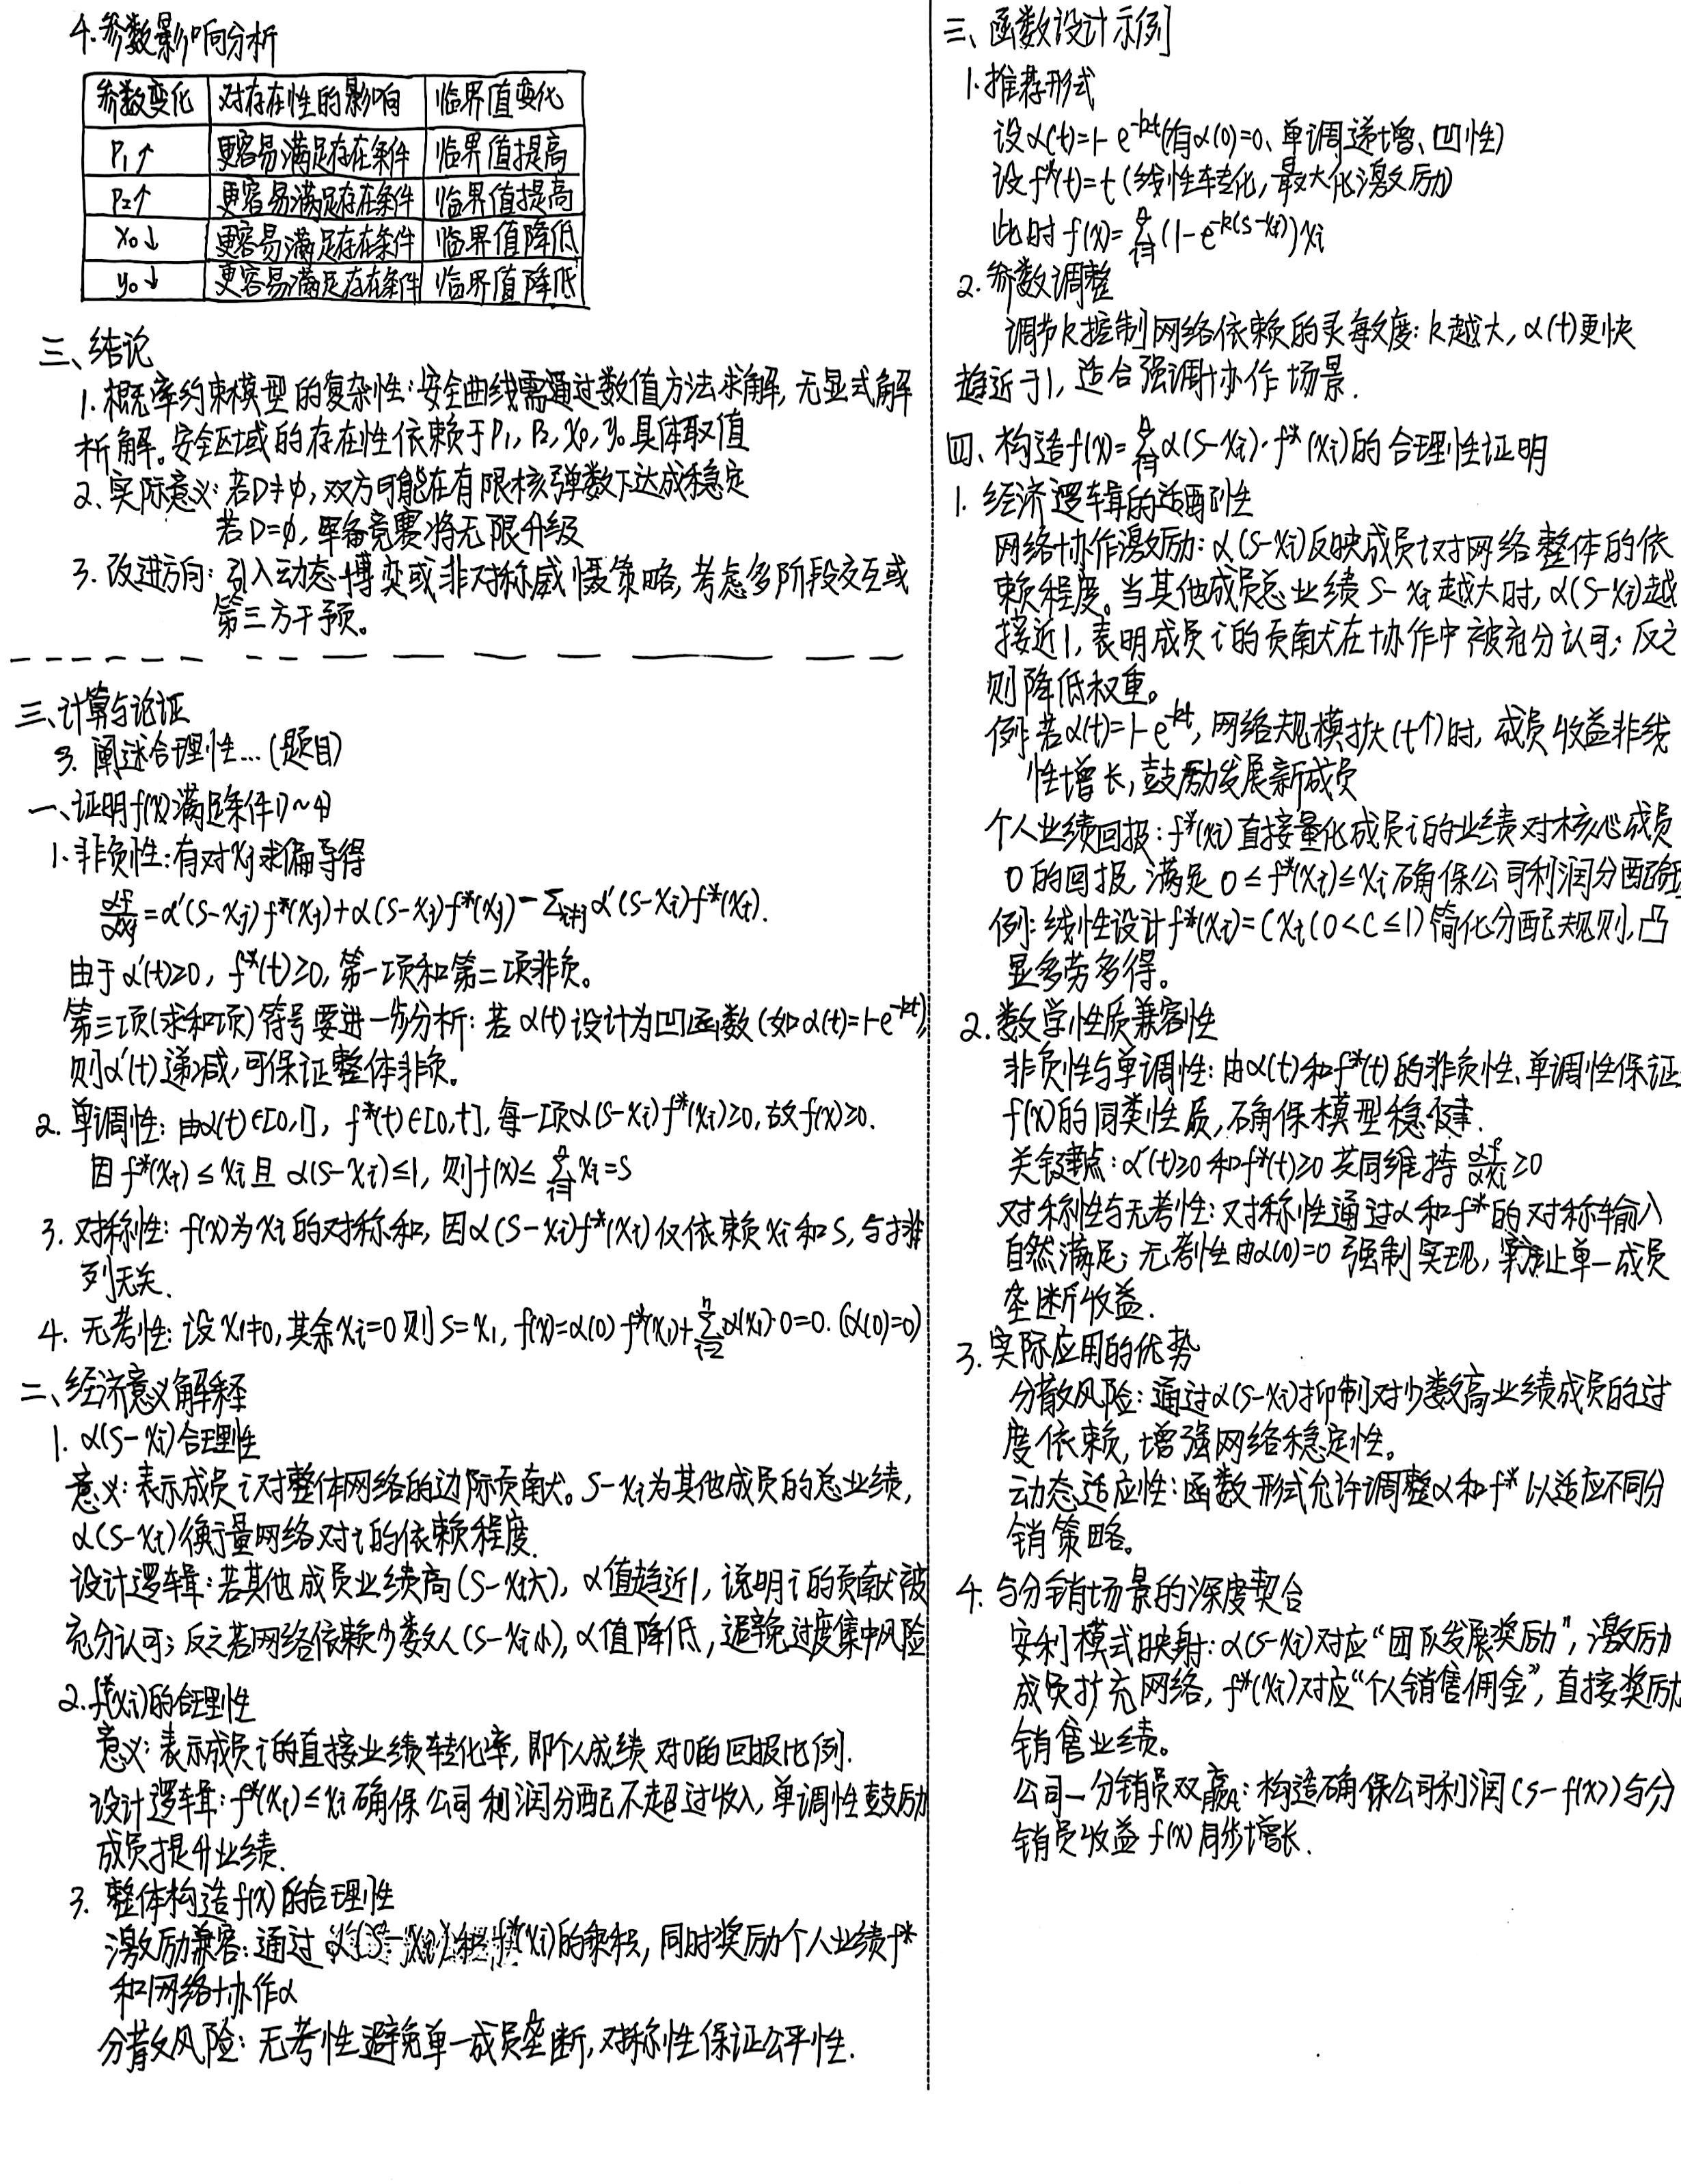 4.参数影响分析
参数变化 对存在性的影响 临界值变化
P₁↑ 更容易满足存在条件 临界值提高
P₂↑ 更容易满足存在条件 临界值提高
X₀↓ 更容易满足存在条件 临界值降低
y₀↓ 更容易满足存在条件 临界值降低
三、结论
1.概率约束模型的复杂性:安全曲线需通过数值方法求解,无显式解
析解。安全区域的存在性依赖于P₁,P₂,X₀,y₀具体取值
2.实际意义:若D≠φ,双方可能在有限核弹数下达成稳定
若D=φ,军备竞赛将无限升级
3.改进方向:引入动态博奕或非对称威慑策略,考虑多阶段交互或
第三方干预。
三、计算与论证
3.阐述合理性…(题目)
一、证明f(x)满足条件1)~4)
1.非负性:有对xj求偏导得
αf/αxj=α'(S-xj)f*(xj)+α(S-xj)f*(xj)-Σi≠jα'(S-xi)f*(xi).
由于α'(t)≥0,f*(t)≥0,第一项和第二项非负。
第三项(求和项)符号要进一步分析:若α(t)设计为凹函数(如α(t)=1-e^-kt),
则α'(t)递减,可保证整体非负。
2.单调性:由α(t)∈[0,1],f*(t)∈[0,t],每一项α(S-xi)f*(xi)≥0,故f(x)≥0.
因f*(xi)≤xi且α(S-xi)≤1,则f(x)≤Σxi=S
3.对称性:f(x)为xi的对称和,因α(S-xi)f*(xi)仅依赖xi和S,与排
列无关.
4.无考性:设x₁≠0,其余xi=0则S=x₁,f(x)=α(0)f*(x₁)+Σα(x₁)·0=0.(α(0)=0)
二、经济意义解释
1.α(S-xi)合理性
意义:表示成员i对整体网络的边际贡献。S-xi为其他成员的总业绩,
α(S-xi)衡量网络对i的依赖程度.
设计逻辑:若其他成员业绩高(S-xi大),α值趋近1,说明i的贡献被
充分认可;反之若网络依赖少数人(S-xi小),α值降低,避免过度集中风险
2.f*(xi)的合理性
意义:表示成员i的直接业绩转化率,即个人成绩对0的回报比例.
设计逻辑:f*(xi)≤xi确保公司利润分配不超过收入,单调性鼓励
成员提升业绩.
3.整体构造f(x)的合理性
激励兼容:通过α(S-xi)和f*(xi)的乘积,同时奖励个人业绩f*
和网络协作α
分散风险:无考性避免单一成员垄断,对称性保证公平性.
三、函数设计示例
1.推荐形式
设α(t)=1-e^-kt(有α(0)=0、单调递增、凹性)
设f*(t)=t(线性转化,最大化激励)
此时f(x)=Σ(1-e^-k(S-xi))xi
2.参数调整
调节k控制网络依赖的灵敏度:k越大,α(t)更快
趋近于1,适合强调协作场景.
四、构造f(x)=Σα(S-xi)·f*(xi)的合理性证明
1.经济逻辑的适配性
网络协作激励:α(S-xi)反映成员i对网络整体的依
赖程度。当其他成员总业绩S-xi越大时,α(S-xi)越
接近1,表明成员i的贡献在协作中被充分认可;反之
则降低权重。
例:若α(t)=1-e^-kt,网络规模扩大(t↑)时,成员收益非线
性增长,鼓励发展新成员
个人业绩回报:f*(xi)直接量化成员i的业绩对核心成员
0的回报,满足0≤f*(xi)≤xi确保公司利润分配
例:线性设计f*(xi)=Cxi(0<C≤1)简化分配规则,凸
显多劳多得。
2.数学性质兼容性
非负性与单调性:由α(t)和f*(t)的非负性、单调性保证
f(x)的同类性质,确保模型稳健.
关键点:α'(t)≥0和f*(t)≥0共同维持αf/αxi≥0
对称性与无考性:对称性通过α和f*的对称输入
自然满足;无考性由α(0)=0强制实现,防止单一成员
垄断收益.
3.实际应用的优势
分散风险:通过α(S-xi)抑制对少数高业绩成员的过
度依赖,增强网络稳定性。
动态适应性:函数形式允许调整α和f*以适应不同分
销策略。
4.与分销场景的深度契合
安利模式映射:α(S-xi)对应“团队发展奖励”,激励
成员扩充网络,f*(xi)对应“个人销售佣金”,直接奖励
销售业绩。
公司一分销员双赢:构造确保公司利润(S-f(x))与分
销员收益f(x)同步增长.